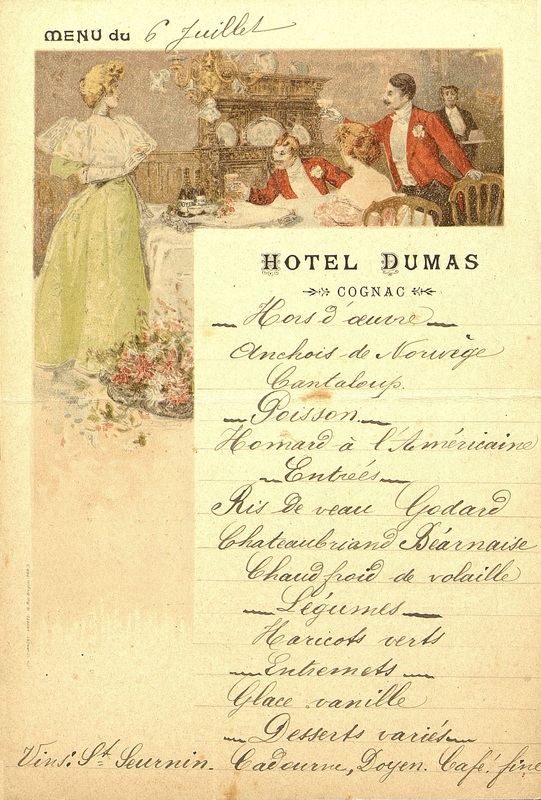 MENU du 6 Juillet
HOTEL DUMAS
COGNAC
Hors d'œuvre
Anchois de Norvège
Cantaloup.
Poisson.
Homard à l'Américaine
Entrées
Ris de veau Godard
Chateaubriand Béarnaise
Chaud froid de volaille
Légumes
Haricots verts
Entremets
Glace vanille
Desserts variés
Vins: St Seurnin. Cadourne, Doyen. Café. fine